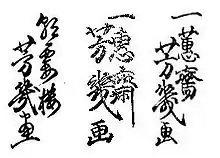 一蕙齋芳幾画
一蕙齋芳幾画
朝霞楼芳幾画